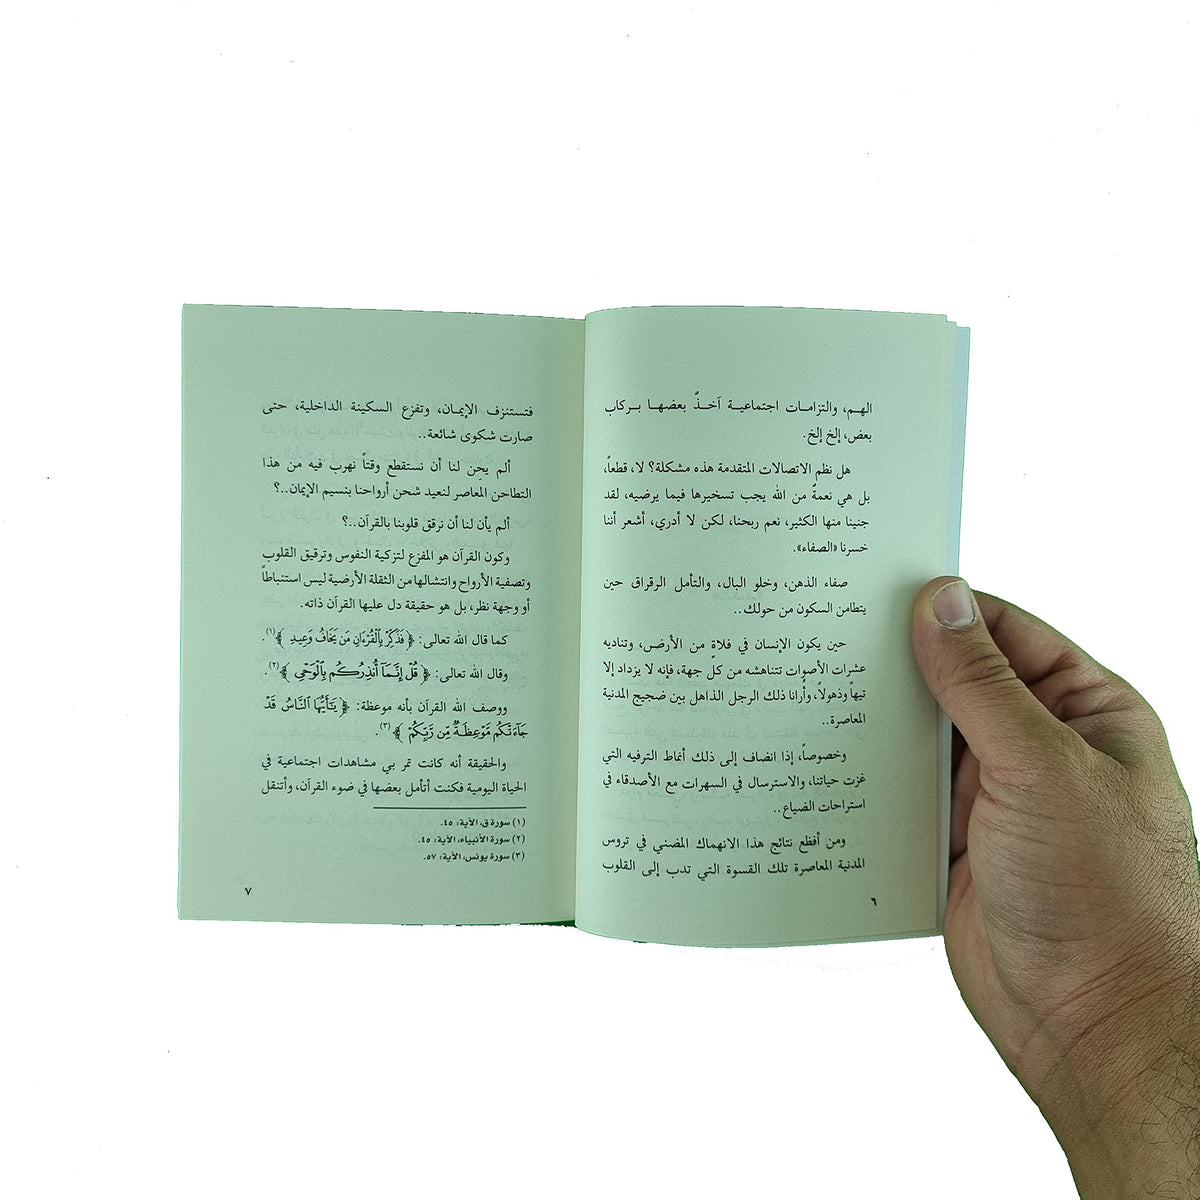 الهـم، والتزامـات اجتماعيـة آخـذٌ بعضهـا بـركاب
بعض، إلخ إلخ.
هل نظم الاتصالات المتقدمة هذه مشكلة؟ لا، قطعاً،
بل هي نعمةٌ من الله يجب تسخيرها فيما يرضيه، لقد
جنينا منها الكثير، نعم ربحنا، لكن لا أدري، أشعر أننا
خسرنا «الصفاء».
صفاء الذهن، وخلو البال، والتأمل الرقراق حين
يتطامن السكون من حولك..
حين يكون الإنسان في فلاةٍ من الأرض، وتناديه
عشرات الأصوات تتناهشه من كلّ جهة، فإنه لا يزداد إلا
تيهاً وذهولاً، وأُرانا ذلك الرجل الذاهل بين ضجيج المدنية
المعاصرة..
وخصوصاً، إذا انضاف إلى ذلك أنماط الترفيه التي
غزت حياتنا، والاسترسال في السهرات مع الأصدقاء في
استراحات الضياع..
ومن أفظع نتائج هذا الانهماك المضني في تروس
المدنية المعاصرة تلك القسوة التي تدب إلى القلوب
٦
فتستنزف الإيمـان، وتفزع السكينة الداخلية، حتى
صارت شكوى شائعة..
ألم يحِن لنا أن نستقطع وقتاً نهرب فيه من هذا
التطاحن المعاصر لنعيد شحن أرواحنا بنسيم الإيمان..؟
ألم يأن لنا أن نرقق قلوبنا بالقرآن..؟
وكون القرآن هو المفزع لتزكية النفوس وترقيق القلوب
وتصفية الأرواح وانتشالها من الثقلة الأرضية ليس استنباطاً
أو وجهة نظر، بل هو حقيقة دل عليها القرآن ذاته.
كما قال الله تعالى: ﴿فَذَكِّرْ بِٱلْقُرْءَانِ مَن يَخَافُ وَعِيدِ﴾(١).
وقال الله تعالى: ﴿قُلْ إِنَّمَآ أُنذِرُكُم بِٱلْوَحْىِ﴾(٢).
ووصف الله القرآن بأنه موعظة: ﴿يَٰٓأَيُّهَا ٱلنَّاسُ قَدْ
جَآءَتْكُم مَّوْعِظَةٌ مِّن رَّبِّكُمْ﴾(٣).
والحقيقة أنه كانت تمر بي مشاهدات اجتماعية في
الحياة اليومية فكنت أتأمل بعضها في ضوء القرآن، وأتنقل
(١) سورة ق، الآية: ٤٥.
(٢) سورة الأنبياء، الآية: ٤٥.
(٣) سورة يونس، الآية: ٥٧.
٧